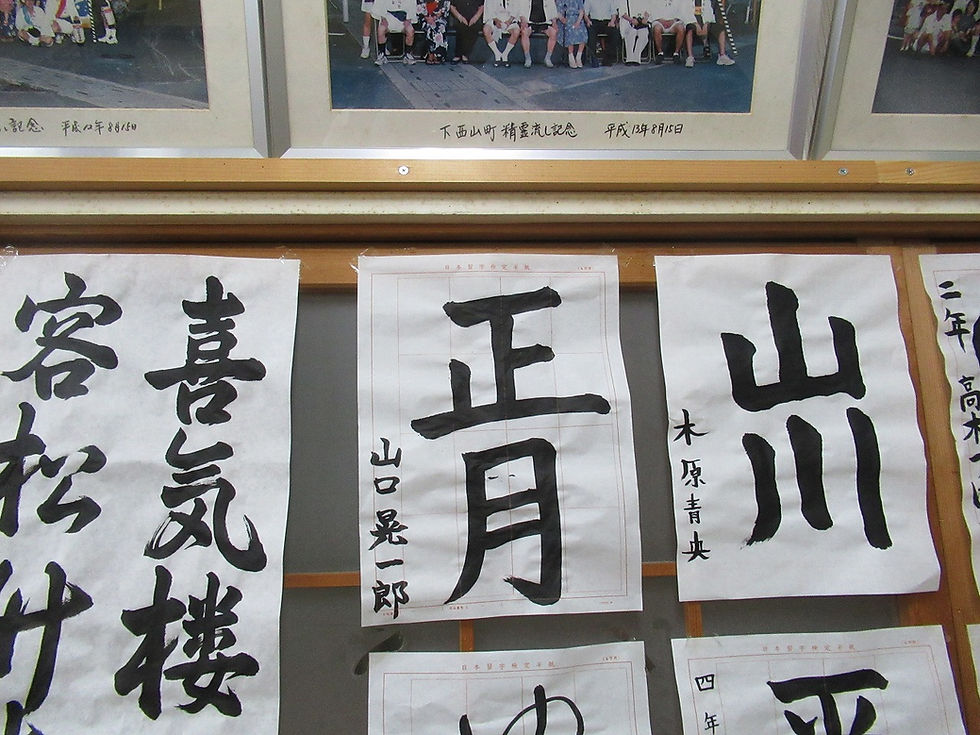 記念 平成12年8月15日
下西山町 精霊流し記念 平成13年8月15日
喜気楼
客松
日本習字検定半紙
正月
山口晃一郎
山川
木原青央
二年 高木
日本習字検定半紙
ゆ
四年
平